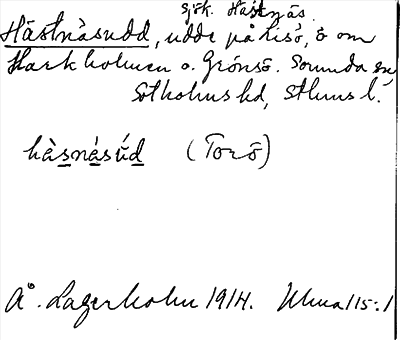 sjök. Hästnäs.
Hästnäsudd, udde på Lisö, ö om
Herkholmen o. Grönsö. Sorunda sn,
Sotholms hd, Sthms l.
hàsnásúd (Torö)
Å. Lagerholm 1914. Uhua 115:1